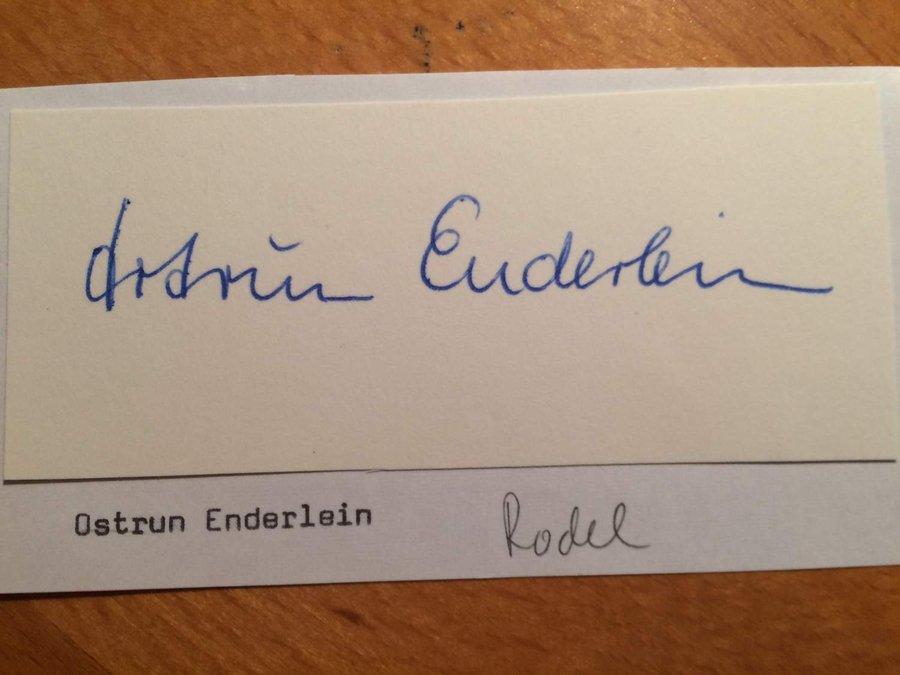 Ortrun Enderlein
Ostrun Enderlein
Rodel